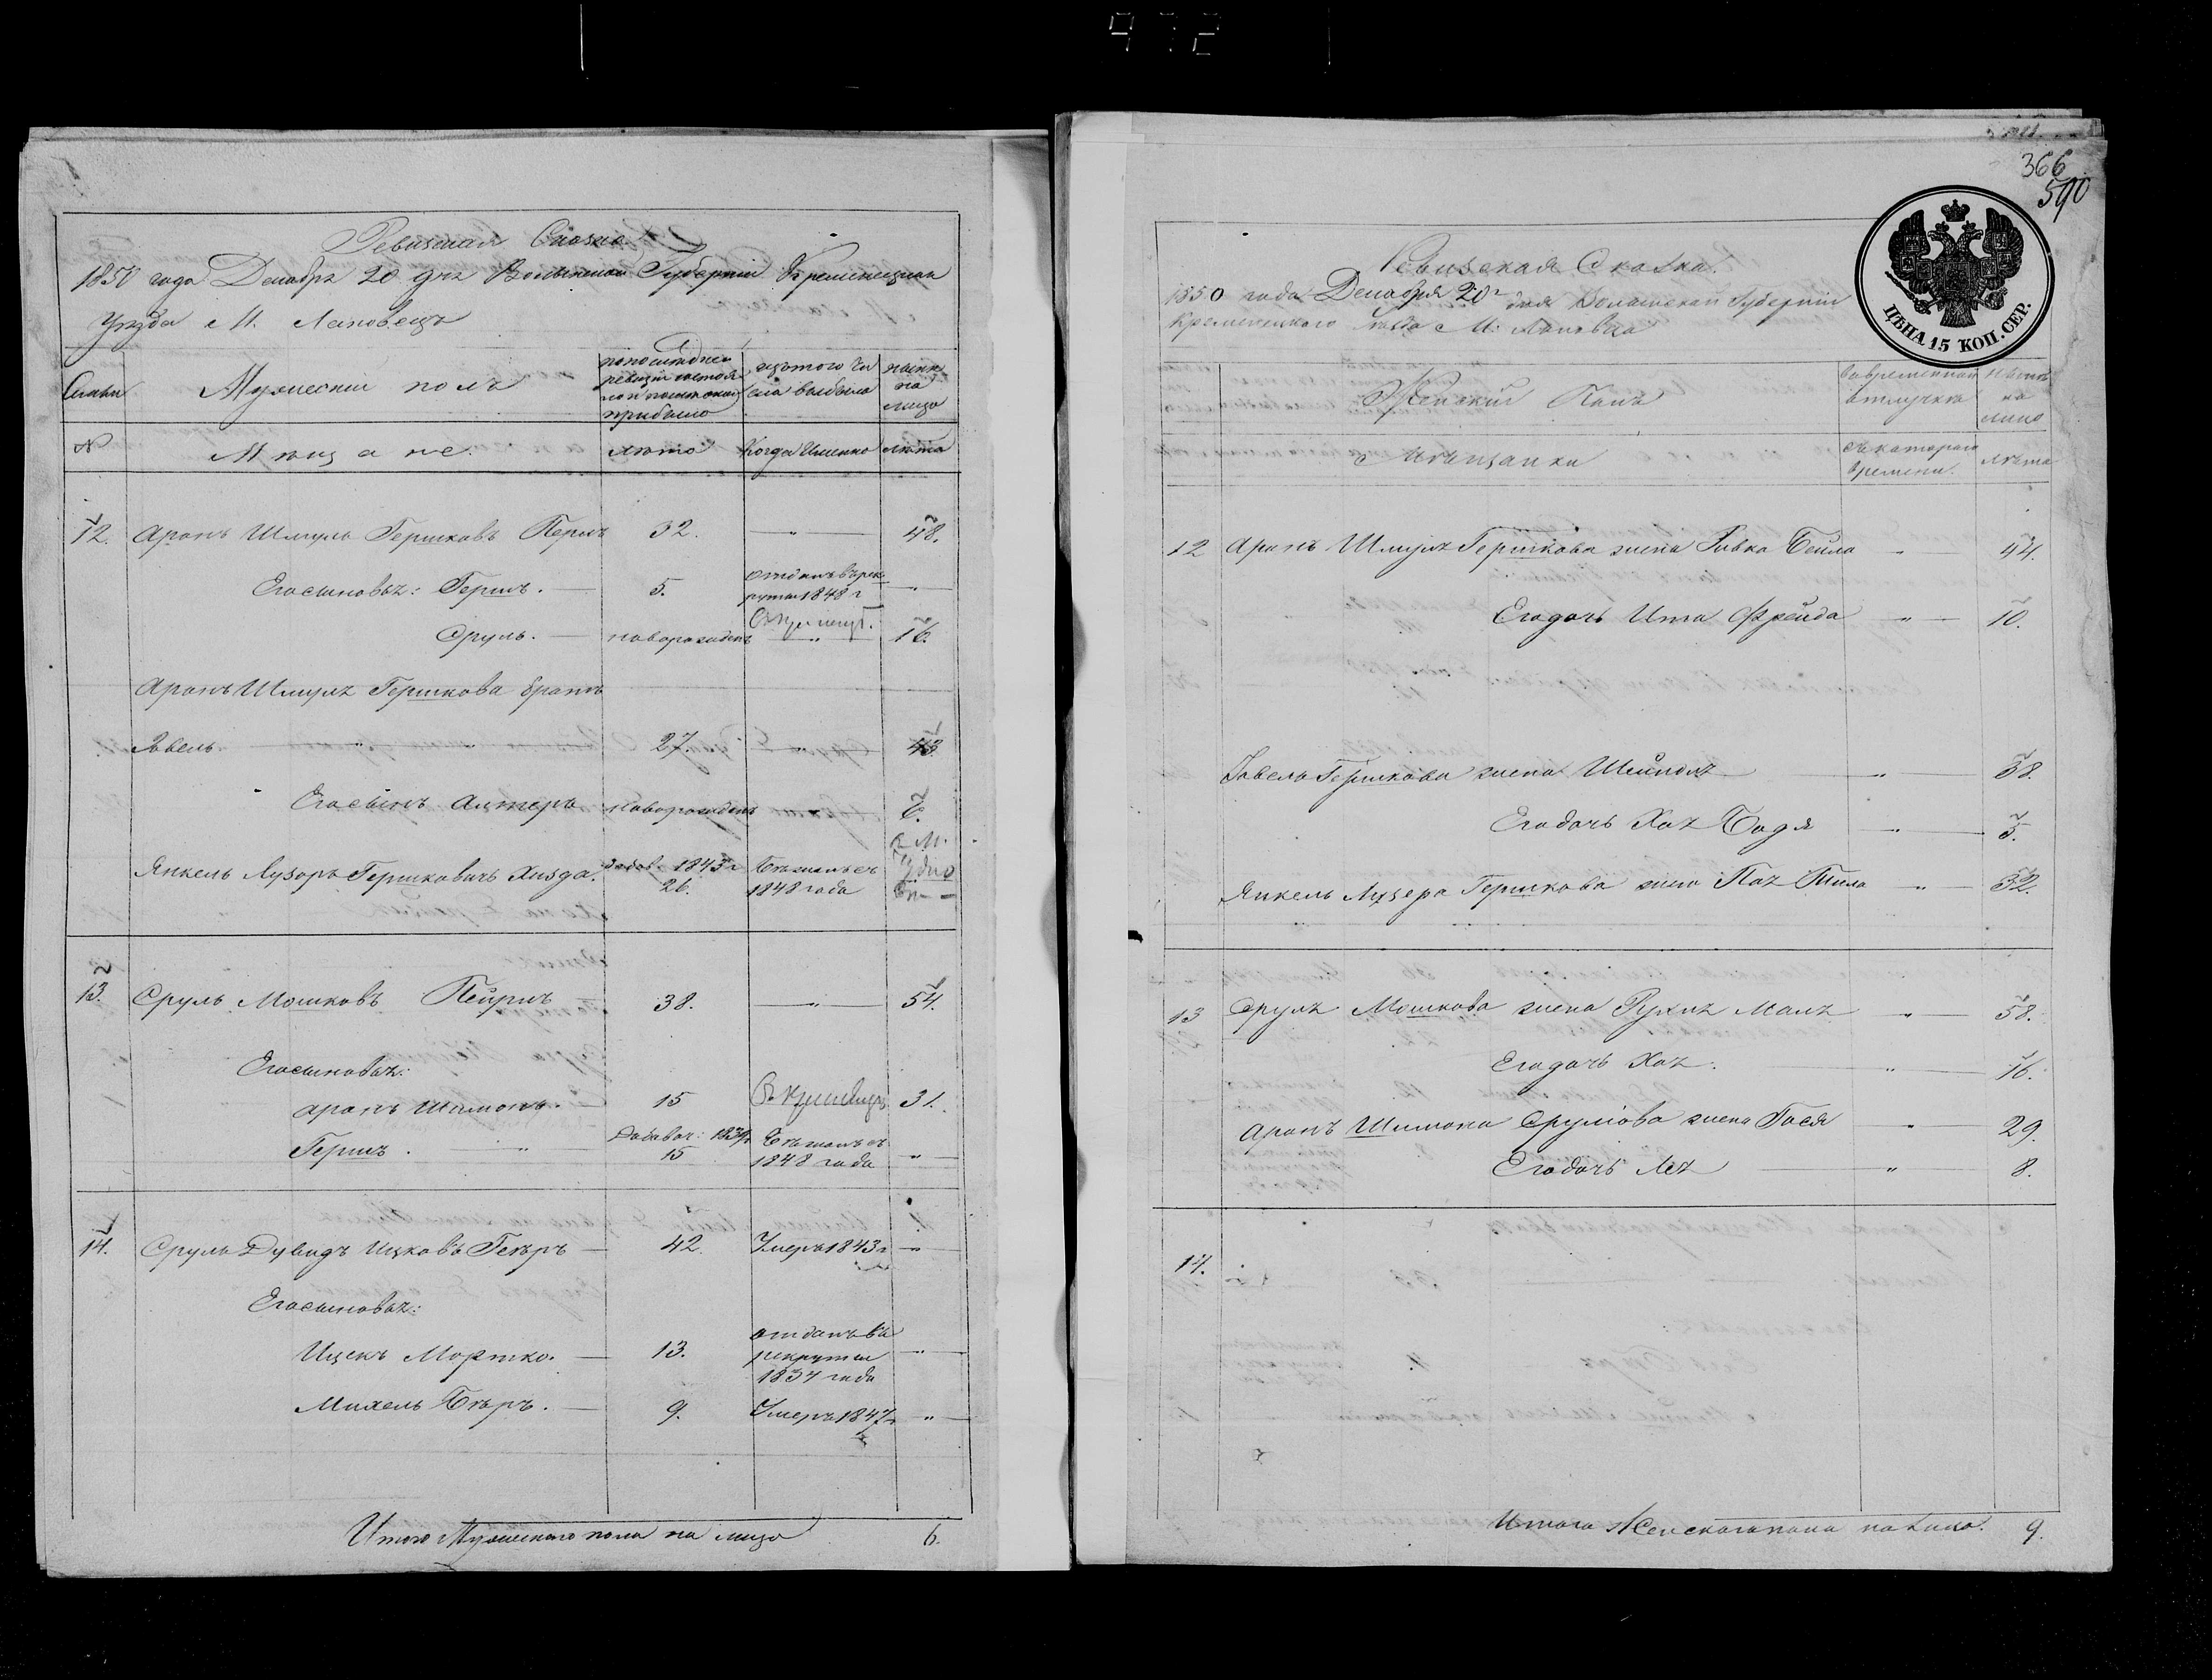 472
Ревизская Сказка
1850 года Декабря 20 дня Волынской Губернии Кременецкаго
Уезда М. Лановец
Семьи
Мужеский полъ
по последней
ревизии состоя
ло и после оной
прибыло
изъ того чи
сла выбыло
ныне
на
лицо
№
Мещане.
лета
Когда Именно
лета
12. Аронъ Шмуль Гершковъ Перлъ 32. — " — 48.
Его сыновья: Гершъ. — 5. отданъ въ рек
руты 1848 г — " —
Сруль. — новорожденъ — " — 16.
Аронъ Шмуля Гершкова братъ
Зевель. — " — 27. — " — 43.
Его сынъ Алтеръ новорожденъ — " — 6.
Янкель Лузоръ Гершковичъ Хизда. добав. 1843 г
26. Бежалъ въ
1848 года
13. Сруль Мошковъ Пейрилъ 38. — " — 54.
Его сыновья:
Аронъ Шимонъ. 15 31.
Гершъ. — " — Добавоч: 1834 г
15 Бежалъ въ
1848 года — " —
14. Сруль Дувидъ Ицковъ Гехръ — 42. Умеръ 1843 г — " —
Его сыновья:
Ицекъ Мортко. — 13. отданъ въ
рекруты
1837 года — " —
Михель Беръ. — 9. Умеръ 1847 г — " —
Итого Мужескаго пола на лицо 6.
366
590
ЦѢНА 15 КОП. СЕР.
Ревизская Сказка.
1850 года Декабря 20 г дня Волынской Губернии
Кременецкаго уезда М. Лановца
Женский Полъ
Во временной
отлучке
Ныне
на
лицо
Мещанки
съ котораго
времени.
лета
12 Аронъ Шмуля Гершкова жена Ривка Бейла " 44.
Его дочь Ита Фрейда — " — 10.
Зевеля Гершкова жена Шейндля " 38.
Его дочь Хая Бодя — " — 5.
Янкель Лузера Гершкова жена Пая Тила — " — 32.
13 Сруля Мошкова жена Рухля Маля — " — 58.
Его дочь Хая. " — 16.
Аронъ Шимона Срулiова жена Гося " 29.
Его дочь Лея — " — 8.
14.
Итого Женскаго пола на Лицо. 9.